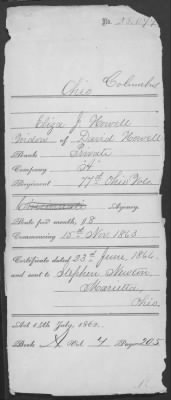 No.
Ohio Columbus
Eliza J Howell
Widow of David Howell
Rank Private
Company "H"
Regiment 77th Ohio Vols.
Agency.
Rate per month, $8
Commencing 15th Nov. 1863
Certificate dated 23rd June, 1864
and sent to Stephen Newton,
Marietta,
Ohio.
Act 14th July, 1862.
Book A Vol 4 Page 205